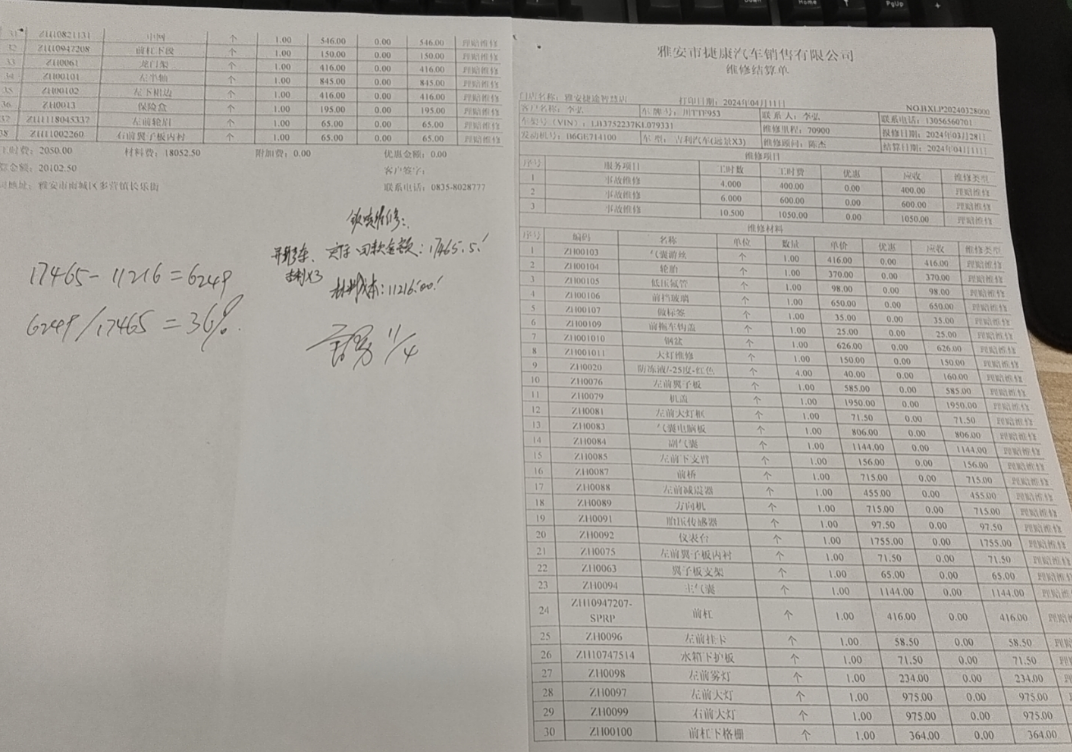 31 ZH10821131 中网 个 1.00 546.00 0.00 546.00 理赔维修
32 ZH10947208 前杠下段 个 1.00 150.00 0.00 150.00 理赔维修
33 ZH0061 龙门架 个 1.00 416.00 0.00 416.00 理赔维修
34 ZH00101 左半轴 个 1.00 845.00 0.00 845.00 理赔维修
35 ZH00102 左下裙边 个 1.00 416.00 0.00 416.00 理赔维修
36 ZH0013 保险盒 个 1.00 195.00 0.00 195.00 理赔维修
37 左前轮眉 个 1.00 65.00 0.00 65.00 理赔维修
38 ZH11002260 右前翼子板内衬 个 1.00 65.00 0.00 65.00 理赔维修
工时费：2050.00 材料费：18052.50 附加费：0.00 优惠金额：0.00
金额：20102.50 客户签字：
地址：雅安市雨城区多营镇长乐街 联系电话：0835-8028777
17465-11216=6249
6249/17465=36%
回款金额：17465.5
材料成本：11216.00
11/4
雅安市捷康汽车销售有限公司
维修结算单
门店名称：雅安捷途智慧店 打印日期：2024年04月11日 NO.BXLP20240328000
客户名称：李弘 车牌号：川TTF953 联系人：李弘 联系电话：13056560701
车架号（VIN）：LB3752237KL079331 维修里程：70900 报修日期：2024年03月28日
发动机号：D6GE714100 车型：吉利汽车(远景X3) 维修顾问：陈杰 结算日期：2024年04月11日
维修项目
序号 服务项目 工时数 工时费 优惠 应收 维修类型
1 事故维修 4.000 400.00 0.00 400.00 理赔维修
2 事故维修 6.000 600.00 0.00 600.00 理赔维修
3 事故维修 10.500 1050.00 0.00 1050.00 理赔维修
维修材料
序号 编码 名称 单位 数量 单价 优惠 应收 维修类型
1 ZH00103 气囊游丝 个 1.00 416.00 0.00 416.00 理赔维修
2 ZH00104 轮胎 个 1.00 370.00 0.00 370.00 理赔维修
3 ZH00105 低压氟管 个 1.00 98.00 0.00 98.00 理赔维修
4 ZH00106 前档玻璃 个 1.00 650.00 0.00 650.00 理赔维修
5 ZH00107 做标签 个 1.00 35.00 0.00 35.00 理赔维修
6 ZH00109 前拖车钩盖 个 1.00 25.00 0.00 25.00 理赔维修
7 ZH001010 钢盆 个 1.00 626.00 0.00 626.00 理赔维修
8 ZH001011 大灯维修 个 1.00 150.00 0.00 150.00 理赔维修
9 ZH0020 防冻液/-25度-红色 个 4.00 40.00 0.00 160.00 理赔维修
10 ZH0076 左前翼子板 个 1.00 585.00 0.00 585.00 理赔维修
11 ZH0079 机盖 个 1.00 1950.00 0.00 1950.00 理赔维修
12 ZH0081 左前大灯框 个 1.00 71.50 0.00 71.50 理赔维修
13 ZH0083 气囊电脑板 个 1.00 806.00 0.00 806.00 理赔维修
14 ZH0084 副气囊 个 1.00 1144.00 0.00 1144.00 理赔维修
15 ZH0085 左前下支臂 个 1.00 156.00 0.00 156.00 理赔维修
16 ZH0087 前桥 个 1.00 715.00 0.00 715.00 理赔维修
17 ZH0088 左前减震器 个 1.00 455.00 0.00 455.00 理赔维修
18 ZH0089 方向机 个 1.00 715.00 0.00 715.00 理赔维修
19 ZH0091 胎压传感器 个 1.00 97.50 0.00 97.50 理赔维修
20 ZH0092 仪表台 个 1.00 1755.00 0.00 1755.00 理赔维修
21 ZH0075 左前翼子板内衬 个 1.00 71.50 0.00 71.50 理赔维修
22 ZH0063 翼子板支架 个 1.00 65.00 0.00 65.00 理赔维修
23 ZH0094 主气囊 个 1.00 1144.00 0.00 1144.00 理赔维
24 ZH10947207-SPRP 前杠 个 1.00 416.00 0.00 416.00 理赔维
25 ZH0096 左前挂卡 个 1.00 58.50 0.00 58.50 理赔维
26 ZH10747514 水箱下护板 个 1.00 71.50 0.00 71.50 理赔
27 ZH0098 左前雾灯 个 1.00 234.00 0.00 234.00 理
28 ZH0097 左前大灯 个 1.00 975.00 0.00 975.00 理
29 ZH0099 右前大灯 个 1.00 975.00 0.00 975.00 理
30 ZH00100 前杠下格栅 个 1.00 364.00 0.00 364.00